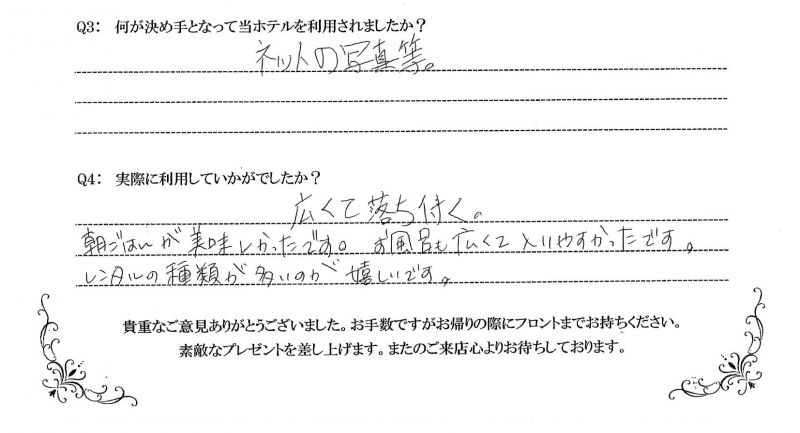 Q3： 何が決め手となって当ホテルを利用されましたか？
ネットの写真等。
Q4： 実際に利用していかがでしたか？
広くて落ち付く。
朝ごはんが美味しかったです。お風呂も広くて入りやすかったです。
レンタルの種類が多いのが嬉しいです。
貴重なご意見ありがとうございました。お手数ですがお帰りの際にフロントまでお持ちください。
素敵なプレゼントを差し上げます。またのご来店心よりお待ちしております。